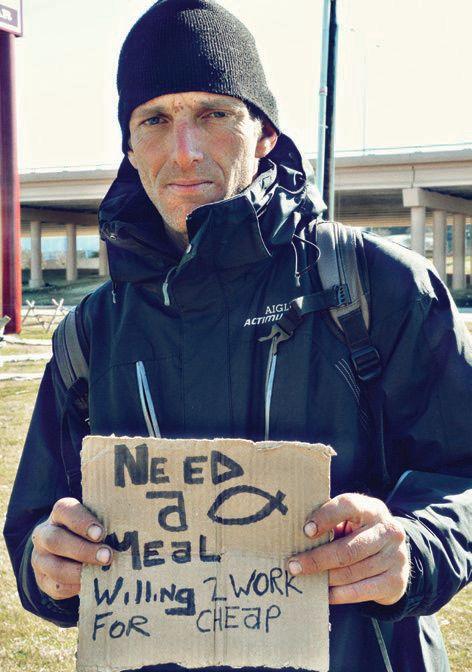 AIGL
ACTIMU
NEED
a
MEaL
Willing 2 WORK
FOR CHEaP